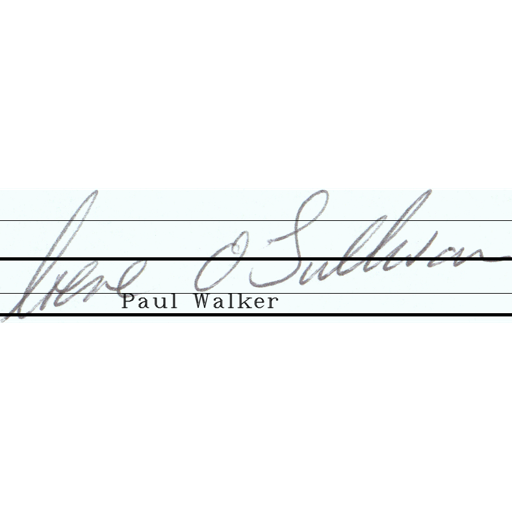 Irene O'Sullivan
Paul Walker